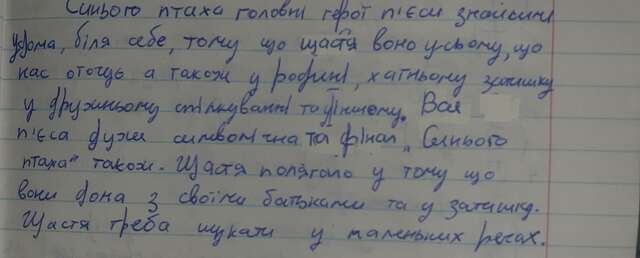 Синього птаха головні герої п'єси знайшли
удома, біля себе, тому що щастя воно у сьому, що
нас оточує а також у родині, хатньому затишку
у дружньому спілкуванні та іншому. Вся
п'єса дуже символічна та фінал „Синього
птаха" також. Щастя полягало у тому що
вони дома з своїми батьками та у затишку.
Щастя треба шукати у маленьких речах.